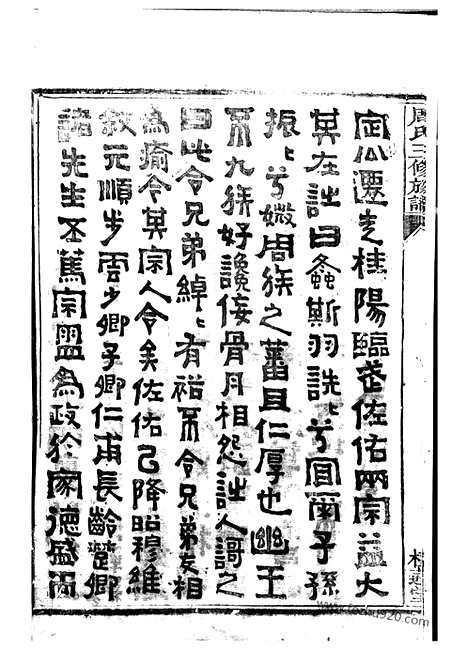 周氏三修族譜
定公遷之桂陽臨武佐佑兩宗益大
其在詩曰螽斯羽詵〻兮宜爾子孫
振〻兮媺周族之蕃且仁厚也幽王
不九族好讒佞骨肉相怨詩人謌之
曰此令兄弟綽〻有裕不令兄弟交相
為瘉今其宗人令矣佐佑已降昭穆維
敘元順步雲少卿子卿仁甫長齡楚卿
諸先生丕篤宗盟為政於家德盛尚